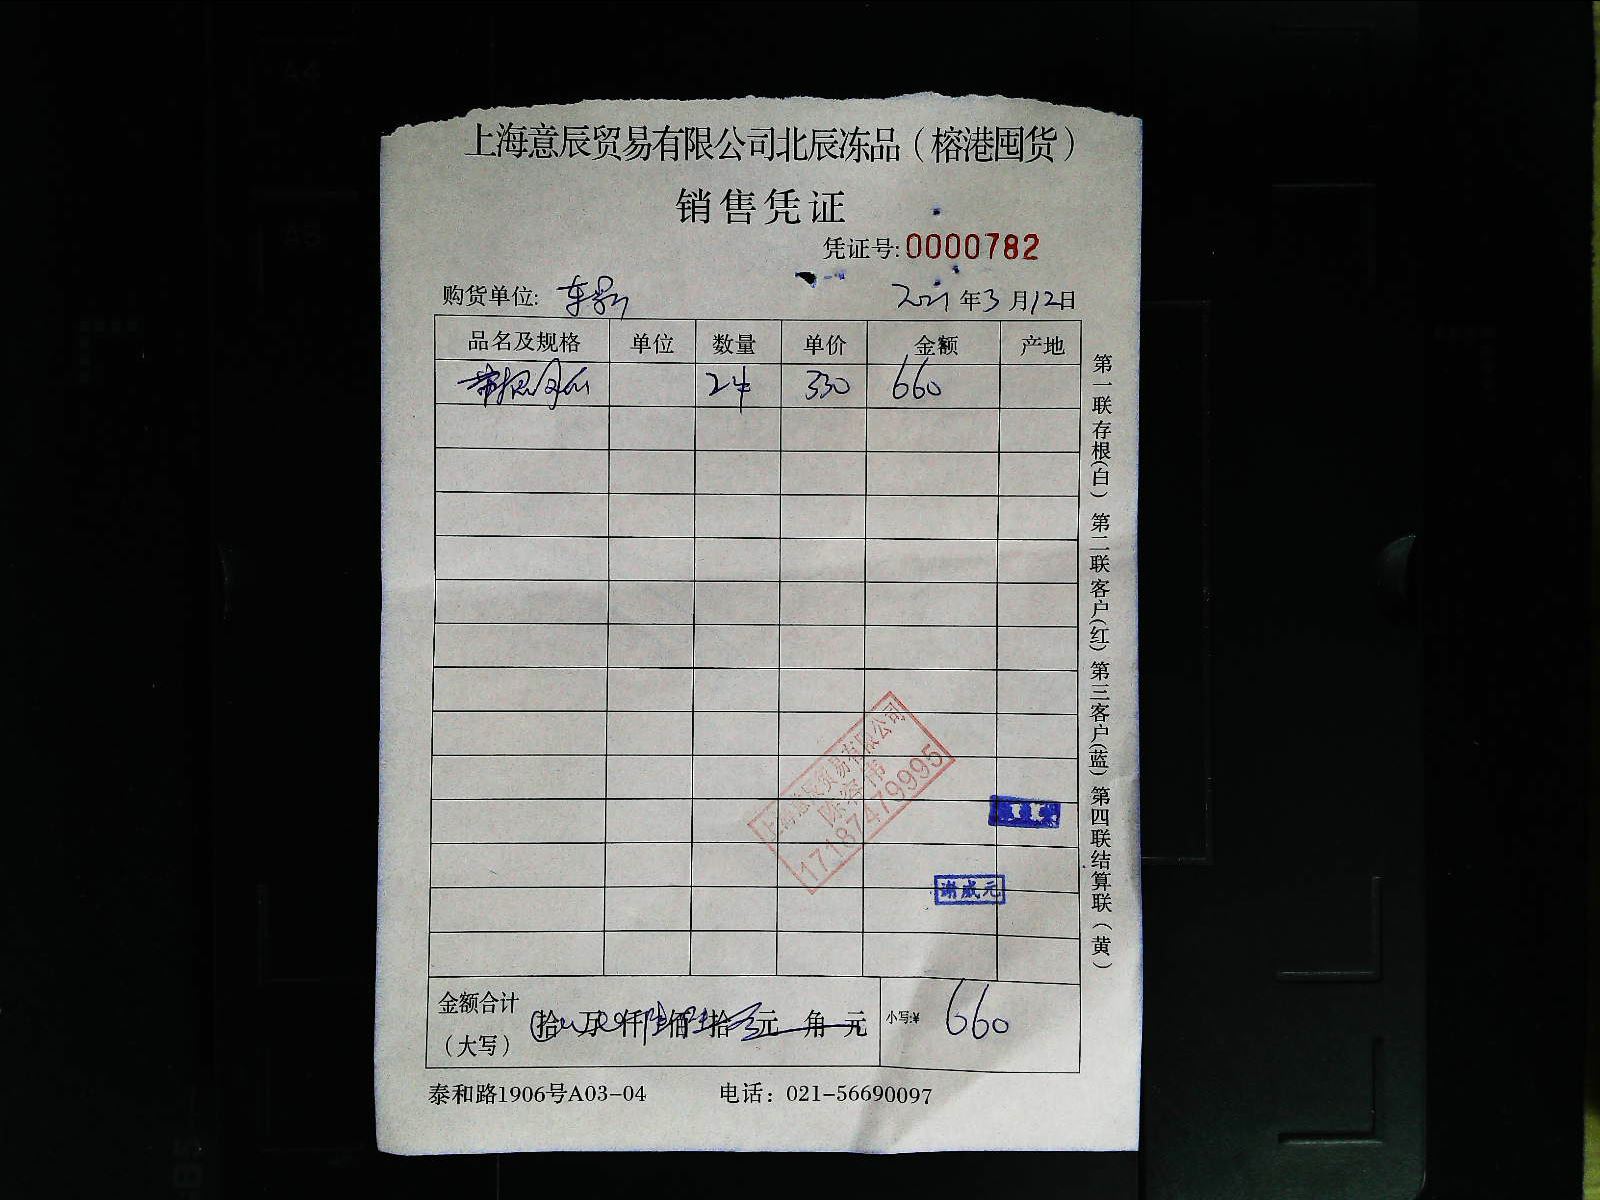 上海意辰贸易有限公司北辰冻品（榕港囤货）
销售凭证
凭证号:0000782
购货单位:
2021年3月12日
品名及规格 单位 数量 单价 金额 产地
2件 330 660
上海意辰贸易有限公司
17187479995
谢威元
金额合计（大写） 拾 万 仟 陆佰 陆拾 元 角 元 小写:¥ 660
泰和路1906号A03-04 电话：021-56690097
第一联存根(白) 第二联客户(红) 第三客户(蓝) 第四联结算联(黄)